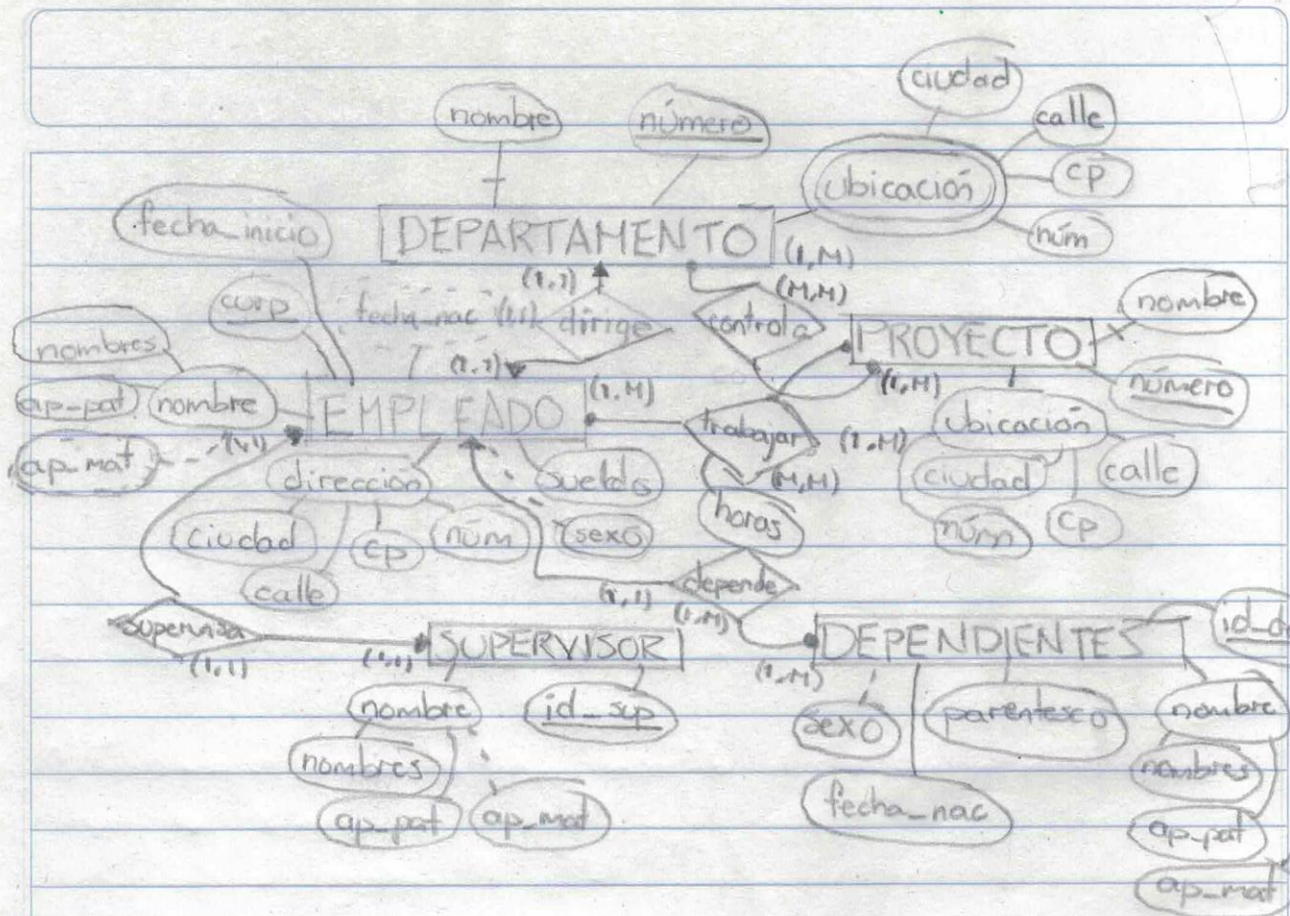 ciudad
nombre número calle
ubicación cp
fecha_inicio DEPARTAMENTO núm
(1,1) (1,M)
curp fecha_nac (1,1) dirige (M,M)
controla nombre
nombres PROYECTO
(1,1) (1,M) (1,M) número
ap_pat nombre EMPLEADO ubicación
ap_mat (1,1) trabajar (1,M)
dirección sueldo (M,M) ciudad calle
ciudad cp núm sexo horas núm cp
calle depende
(1,1) (1,M)
supervisa SUPERVISOR DEPENDIENTES
(1,1) (1,1) (1,M)
nombre id_sup sexo parentesco nombre
nombres nombres
ap_pat ap_mat fecha_nac ap_pat
ap_mat